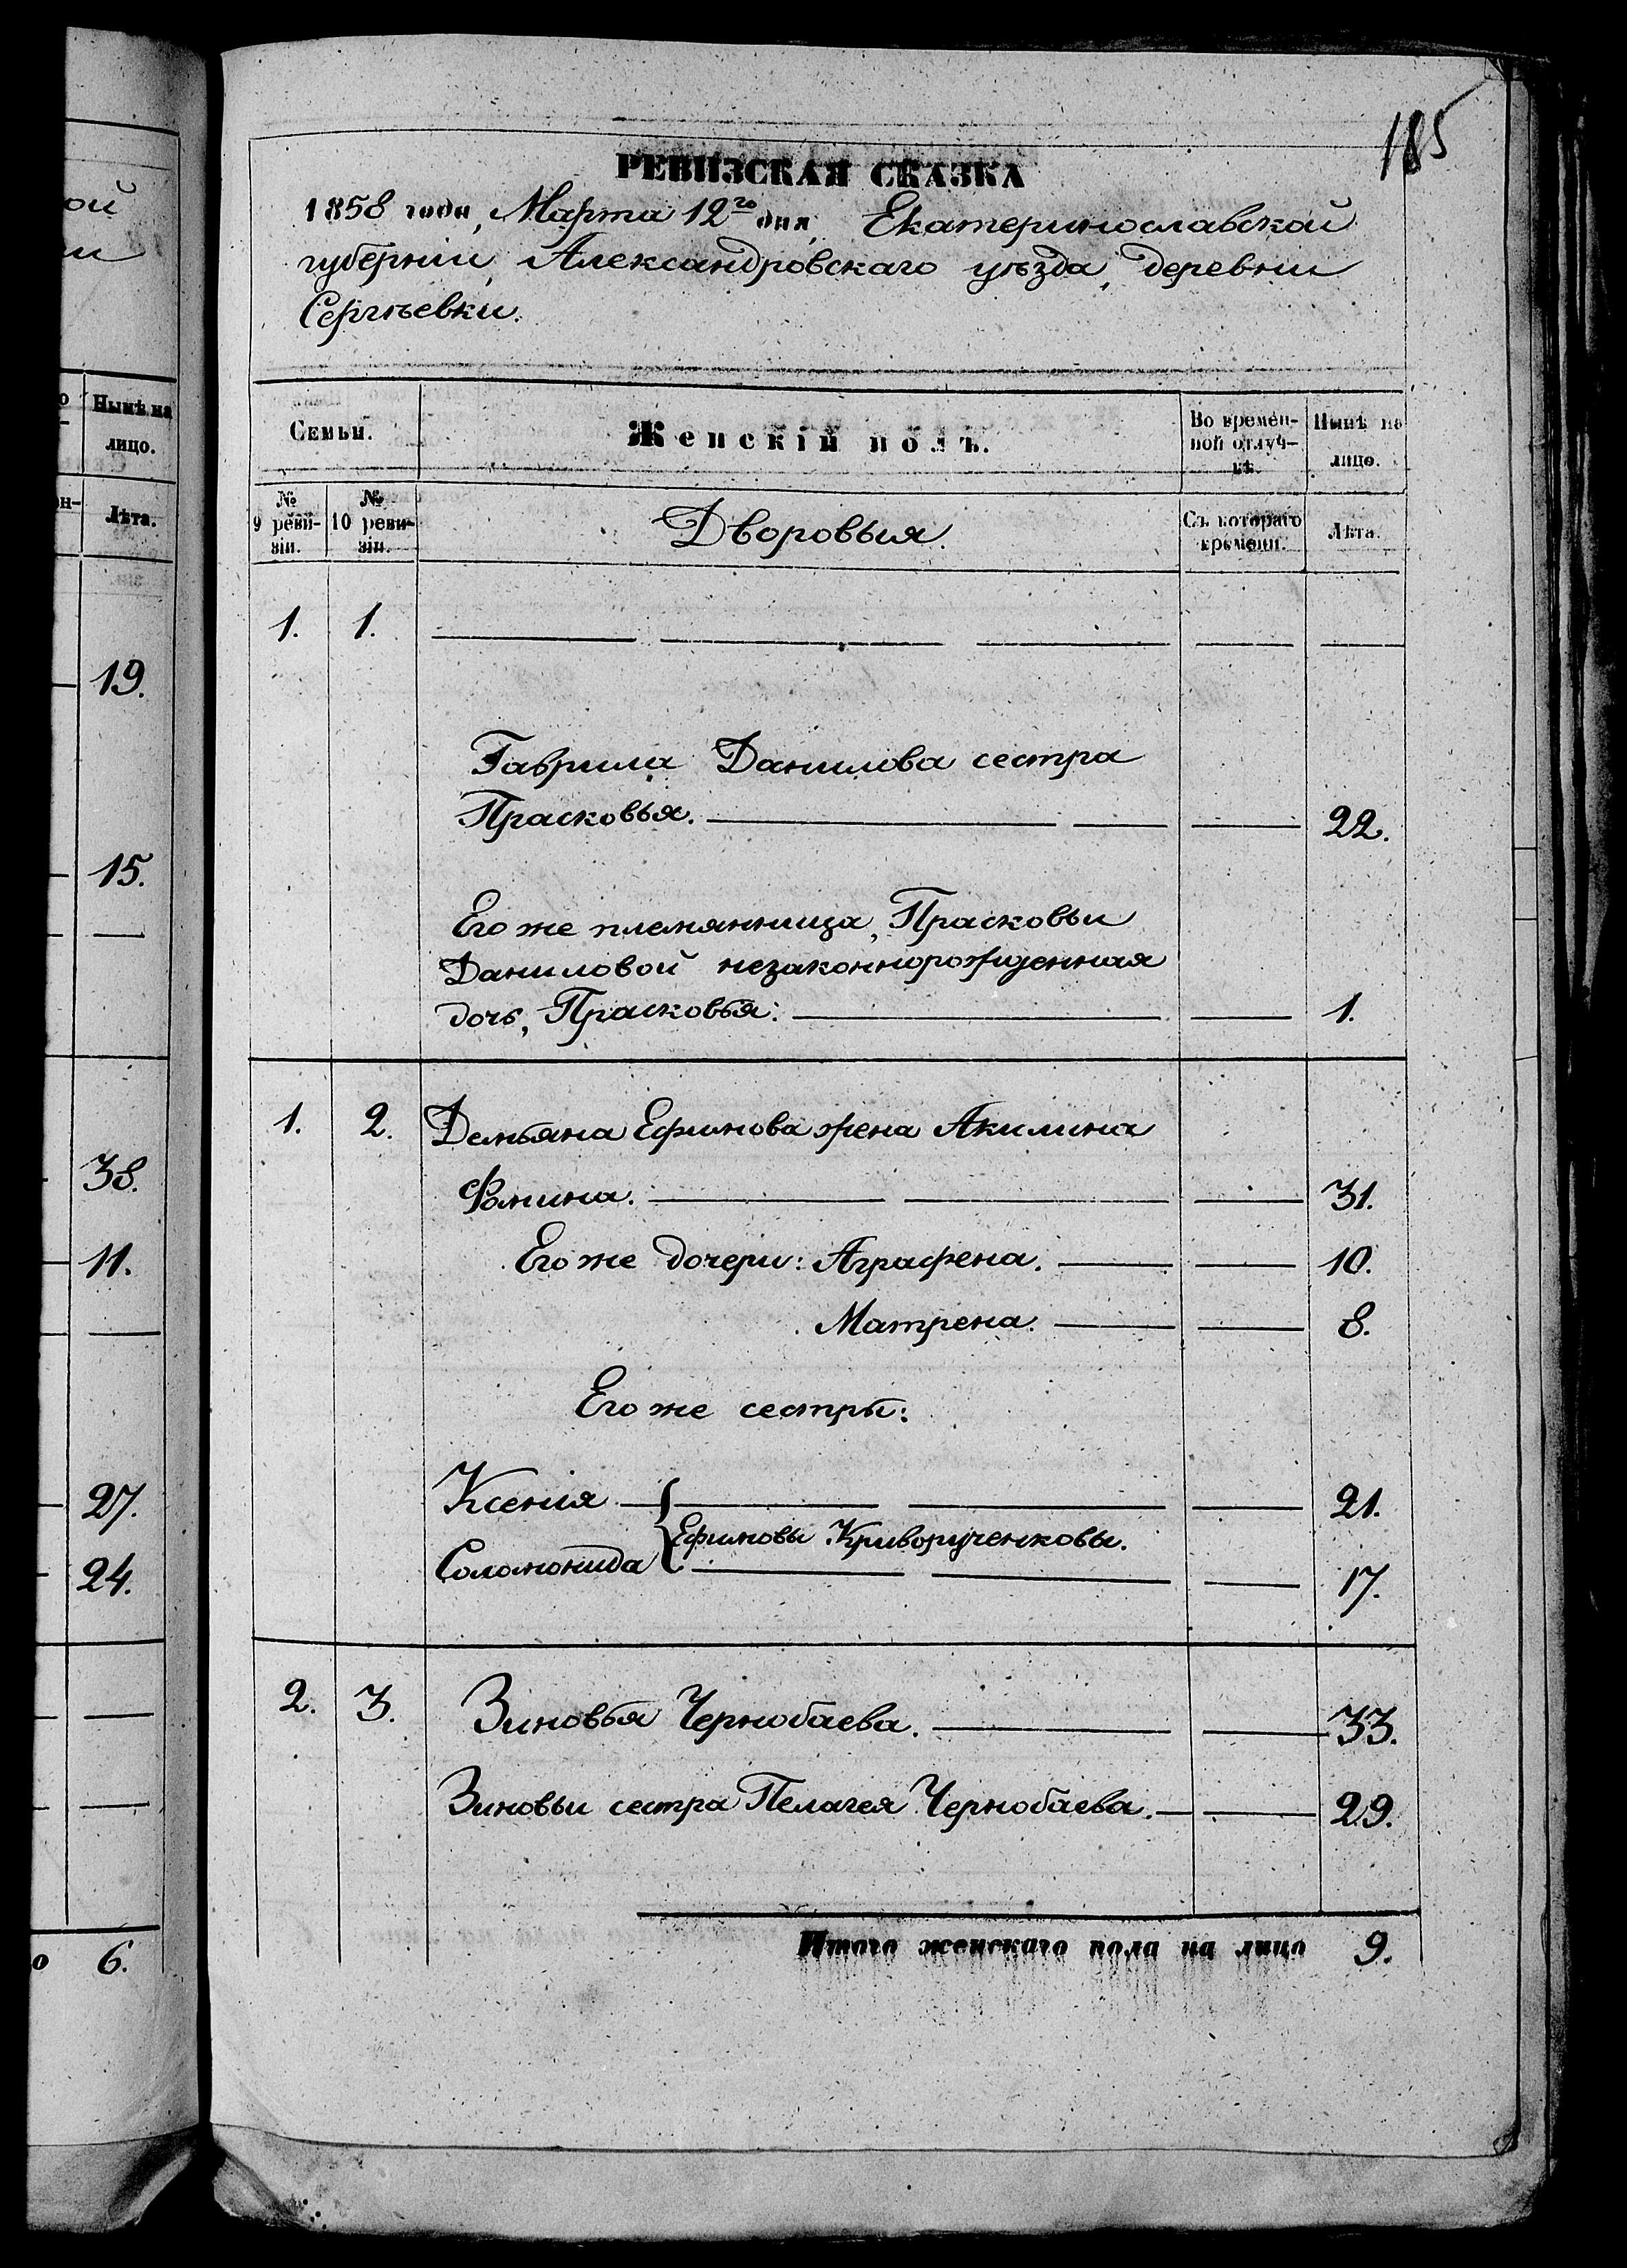 185
РЕВИЗСКАЯ СКАЗКА
1858 года, Марта 12го дня, Екатеринославской
губерніи, Александровскаго уѣзда, деревни
Сергѣевки.
Семьи.
Женскій полъ.
Во времен-
ной отлуч-
кѣ.
Нынѣ на
лицо.
№
9 реви-
зіи.
№
10 реви-
зіи.
Дворовыя.
Съ котораго
времени.
Лѣта.
1. 1.
Гаврила Данилова сестра
Прасковья. 22.
Его же племянница, Прасковьи
Даниловой незаконнорожденная
дочь, Прасковья: 1.
1. 2. Демьяна Ефимова жена Акилина
Фомина. 31.
Его же дочери: Аграфена. 10.
Матрена. 8.
Его же сестры:
Ксенія 21.
Ефимовы Криворученковы.
Соломонида 17.
2. 3. Зиновья Чернобаева. 33.
Зиновьи сестра Пелагея Чернобаева. 29.
Итого женскаго пола на лицо 9.
ой
и
Нынѣ на
лицо.
Лѣта.
19.
15.
38.
11.
27.
24.
о 6.